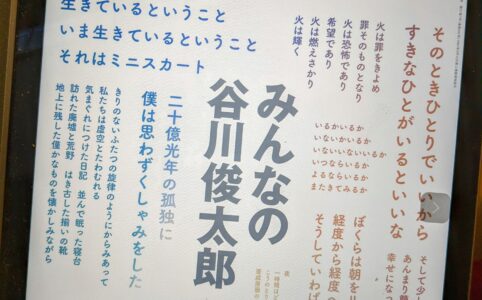 生きているということ
いま生きているということ
それはミニスカート
そのときひとりでいいから
すきなひとがいるといいな
そして少し
あんまり
幸せになっ
火は罪をきよめ
罪そのものとなり
火は恐怖であり
希望であり
火は燃えさかり
火は輝く
いるかいるか
いないかいるか
いないいないいるか
いつならいるか
よるならいるか
またきてみるか
ぼくらは朝を
経度から経度
そうしていわば
みんなの
谷川俊太郎
二十億光年の孤独に
僕は思わずくしゃみをした
きりのないふたつの旋律のようにからみあって
私たちは虚空とたわむれる
気まぐれにつけた日記 並んで眠った寝台
訪れた廃墟と荒野 はき古した揃いの靴
地上に残した僅かなものを懐かしみながら